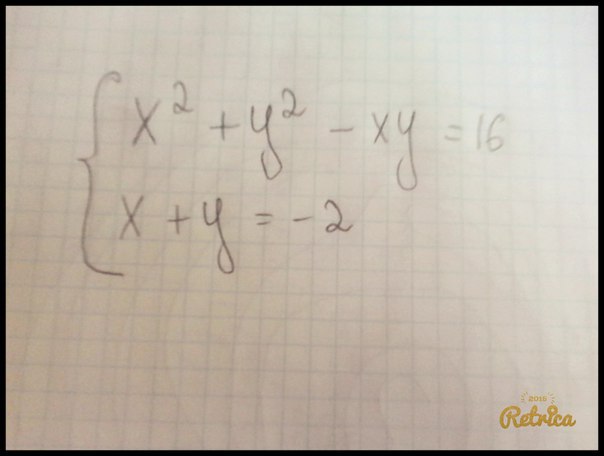 x² + y² - xy = 16
x + y = -2
2015
Retrica